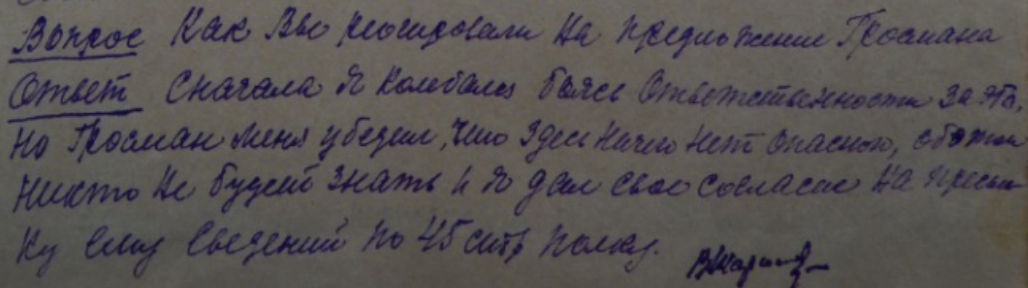 Вопрос Как Вы реагировали на предложение Гросмана
Ответ Сначала я колебался боясь ответственности за это,
но Гросман меня убедил, что здесь ничего нет опасного, об этом
никто не будет знать и я дал свое согласие на пересыл-
ку ему сведений по 45 стр полку.